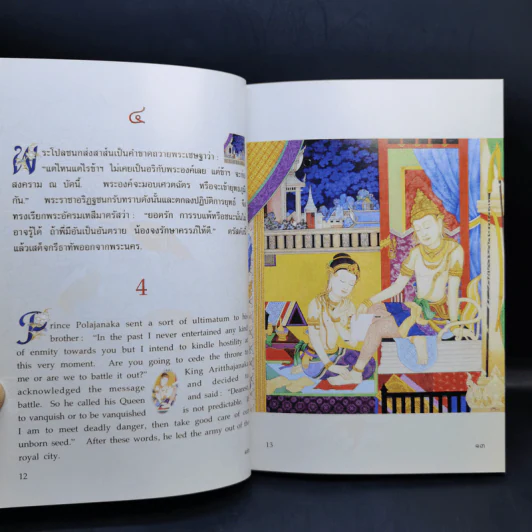 ๔
พระโปลชนกส่งสาส์นเป็นคำขาดถวายพระเชษฐาว่า :
"แต่ไหนแต่ไรข้า ไม่เคยเป็นอริกับพระองค์เลย แต่ข้า
สงคราม ณ บัดนี้. พระองค์จะมอบเศวตฉัตร หรือจะเข้ายุทธ
กัน." พระราชาอริฏฐชนกรับทราบดังนั้นและตกลงปฏิบัติการยุทธ์
ทรงเรียกพระอัครมเหสีมาตรัสว่า : "ยอดรัก การรบแพ้หรือชนะนั้น
อาจรู้ได้ ถ้าพี่มีอันเป็นอันตราย น้องจงรักษาครรภ์ให้ดี." ตรัสดังนี้
แล้วเสด็จกรีธาทัพออกจากพระนคร.
4
Prince Polajanaka sent a sort of ultimatum to
brother: "In the past I never entertained any kind
of enmity towards you but I intend to kindle hostility at
this very moment. Are you going to cede the throne to
me or are we to battle it out?" King Aritthajanaka
acknowledged the message and decided to
battle. So he called his Queen and said: "Dearest,
to vanquish or to be vanquished is not predictable. If
I am to meet deadly danger, then take good care of our
unborn seed." After these words, he led the army out of the
royal city.
12
13